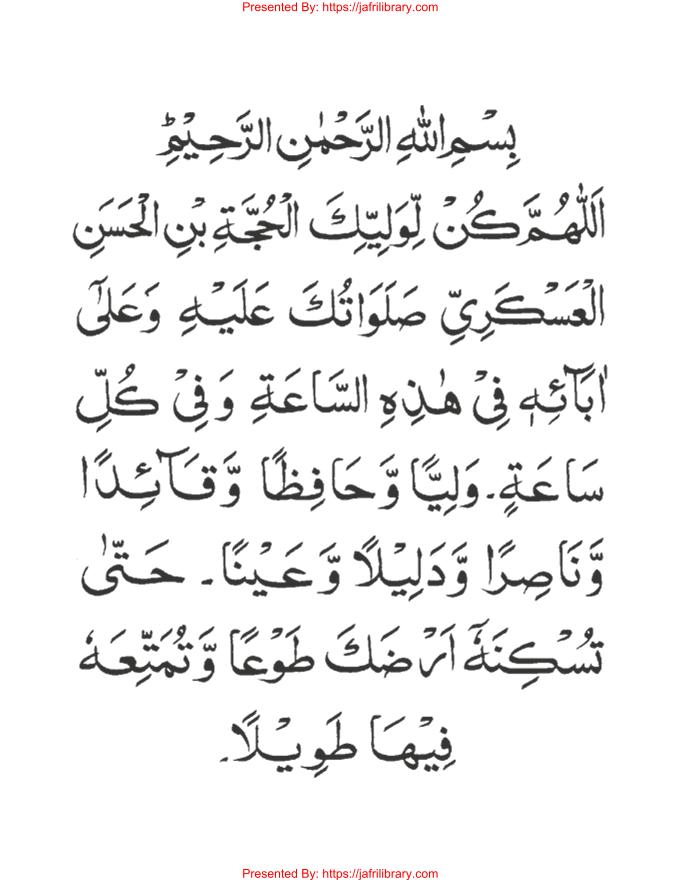 Presented By: https://jafrilibrary.com
بِسْمِ اللّٰهِ الرَّحْمٰنِ الرَّحِيْمِؕ
اَللّٰهُمَّ كُنْ لِّوَلِيِّكَ الْحُجَّةِ بْنِ الْحَسَنِ
الْعَسْكَرِيِّ صَلَوَاتُكَ عَلَيْهِ وَعَلٰٓى
اٰبَآئِهٖ فِيْ هٰذِهِ السَّاعَةِ وَفِيْ كُلِّ
سَاعَةٍ۔ وَلِيًّا وَّحَافِظًا وَّقَآئِدًا
وَّنَاصِرًا وَّدَلِيْلًا وَّعَيْنًا۔ حَتّٰى
تُسْكِنَهٗٓ اَرْضَكَ طَوْعًا وَّتُمَتِّعَهٗ
فِيْهَا طَوِيْلًا۔
Presented By: https://jafrilibrary.com